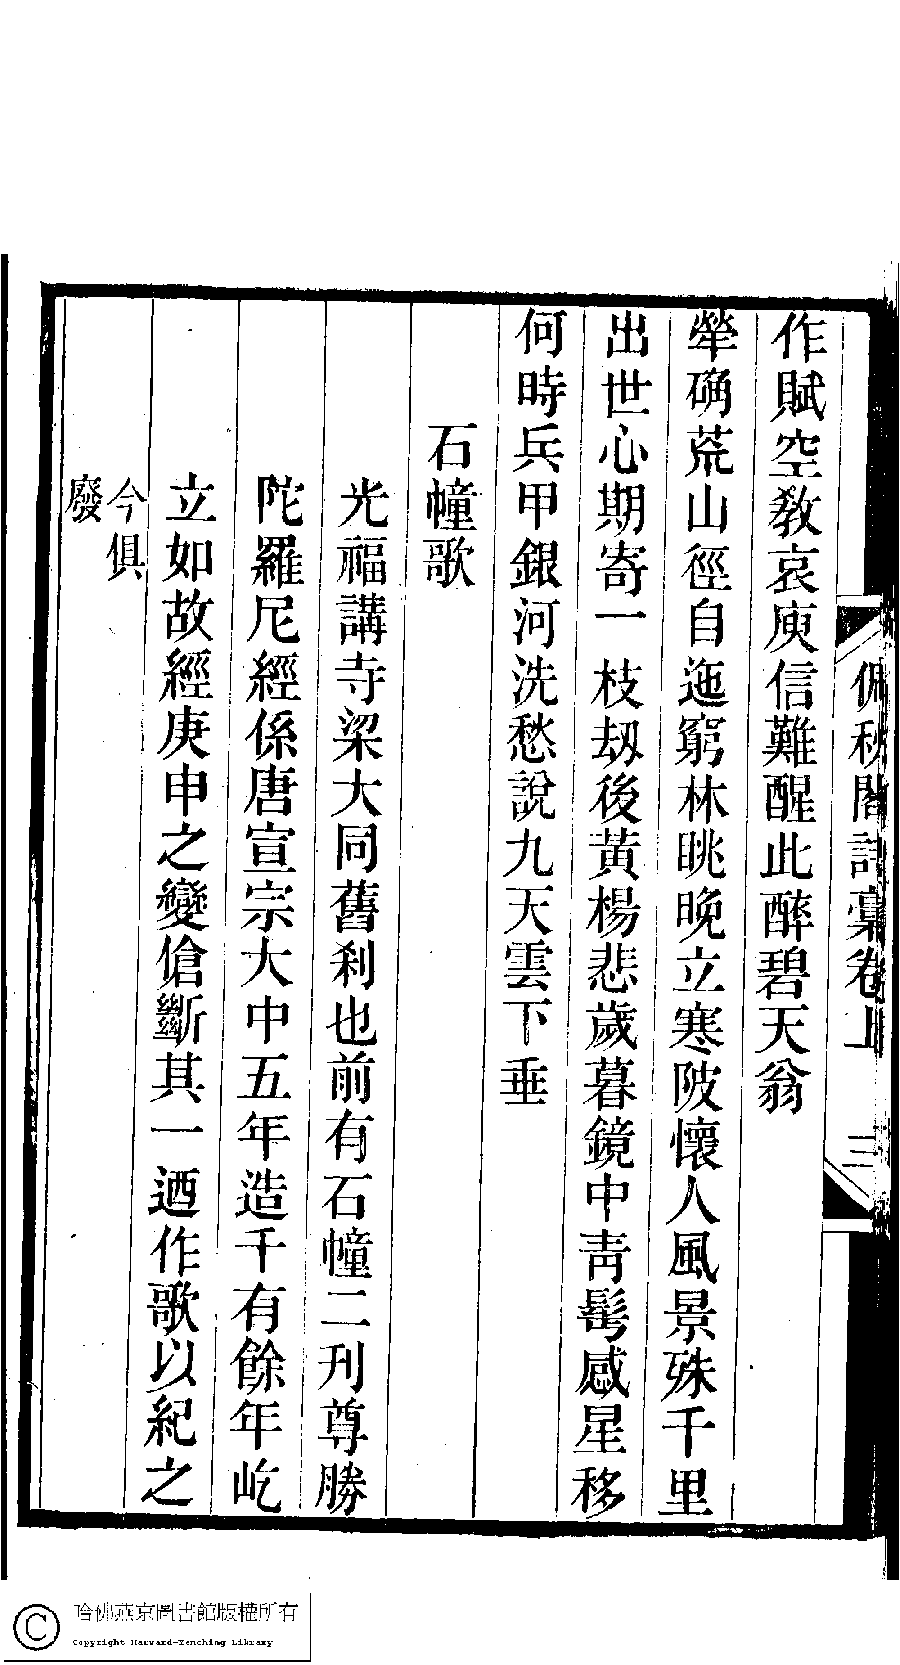 佩秋閣詩稾卷上 三
作賦空教哀庾信難醒此醉碧天翁
犖确荒山徑自迤窮林眺晚立寒陂懷人風景殊千里
出世心期寄一枝刼後黃楊悲歲暮鏡中靑髩感星移
何時兵甲銀河洗愁說九天雲下垂
石幢歌
光福講寺梁大同舊刹也前有石幢二刊尊勝
陀羅尼經係唐宣宗大中五年造千有餘年屹
立如故經庚申之變傖斷其一迺作歌以紀之
今俱
廢
哈佛燕京圖書館版權所有
Copyright Harvard-Yenching Library